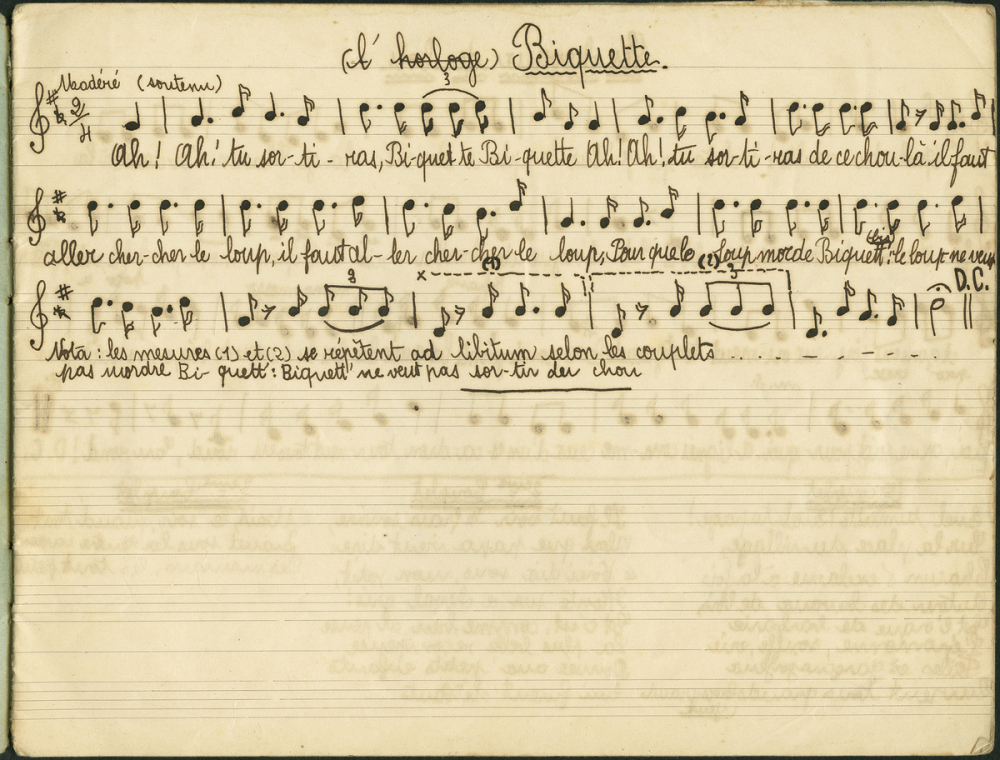 (l' horloge) Biquette.
Modéré (soutenu)
3
2
4
Ah! Ah! tu sor-ti-ras, Biquette Bi-quette Ah! Ah! tu sor-ti-ras de ce chou-là il faut
aller cher-cher le loup, il faut al-ler cher-cher le loup, Pour que le loup morde Biquett': le loup ne veut
x (1) (2) D.C.
3 3
Nota: les mesures (1) et (2) se répètent ad libitum selon les couplets
pas mordre Bi-quett': Biquett' ne veut pas sor-tir des chou